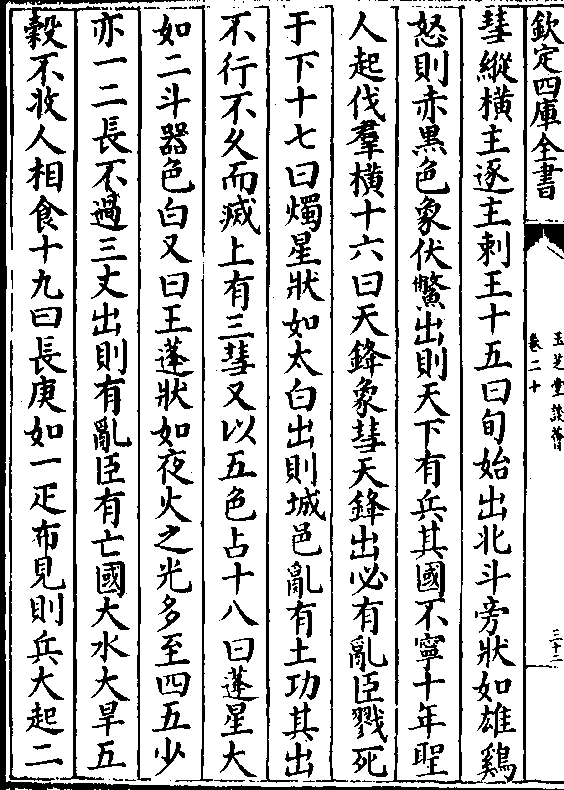 欽定四庫全書
玉芝堂談薈
卷二十
三十二
彗縱橫主逐主刺王十五曰旬始出北斗旁狀如雄鷄
怒則赤黑色象伏鱉出則天下有兵其國不寧十年聖
人起伐羣橫十六曰天鋒象彗天鋒出必有亂臣戮死
于下十七曰燭星狀如太白出則城邑亂有土功其出
不行不久而滅上有三彗又以五色占十八曰蓬星大
如二斗器色白又曰王蓬狀如夜火之光多至四五少
亦一二長不過三丈出則有亂臣有亡國大水大旱五
穀不收人相食十九曰長庚如一疋布見則兵大起二